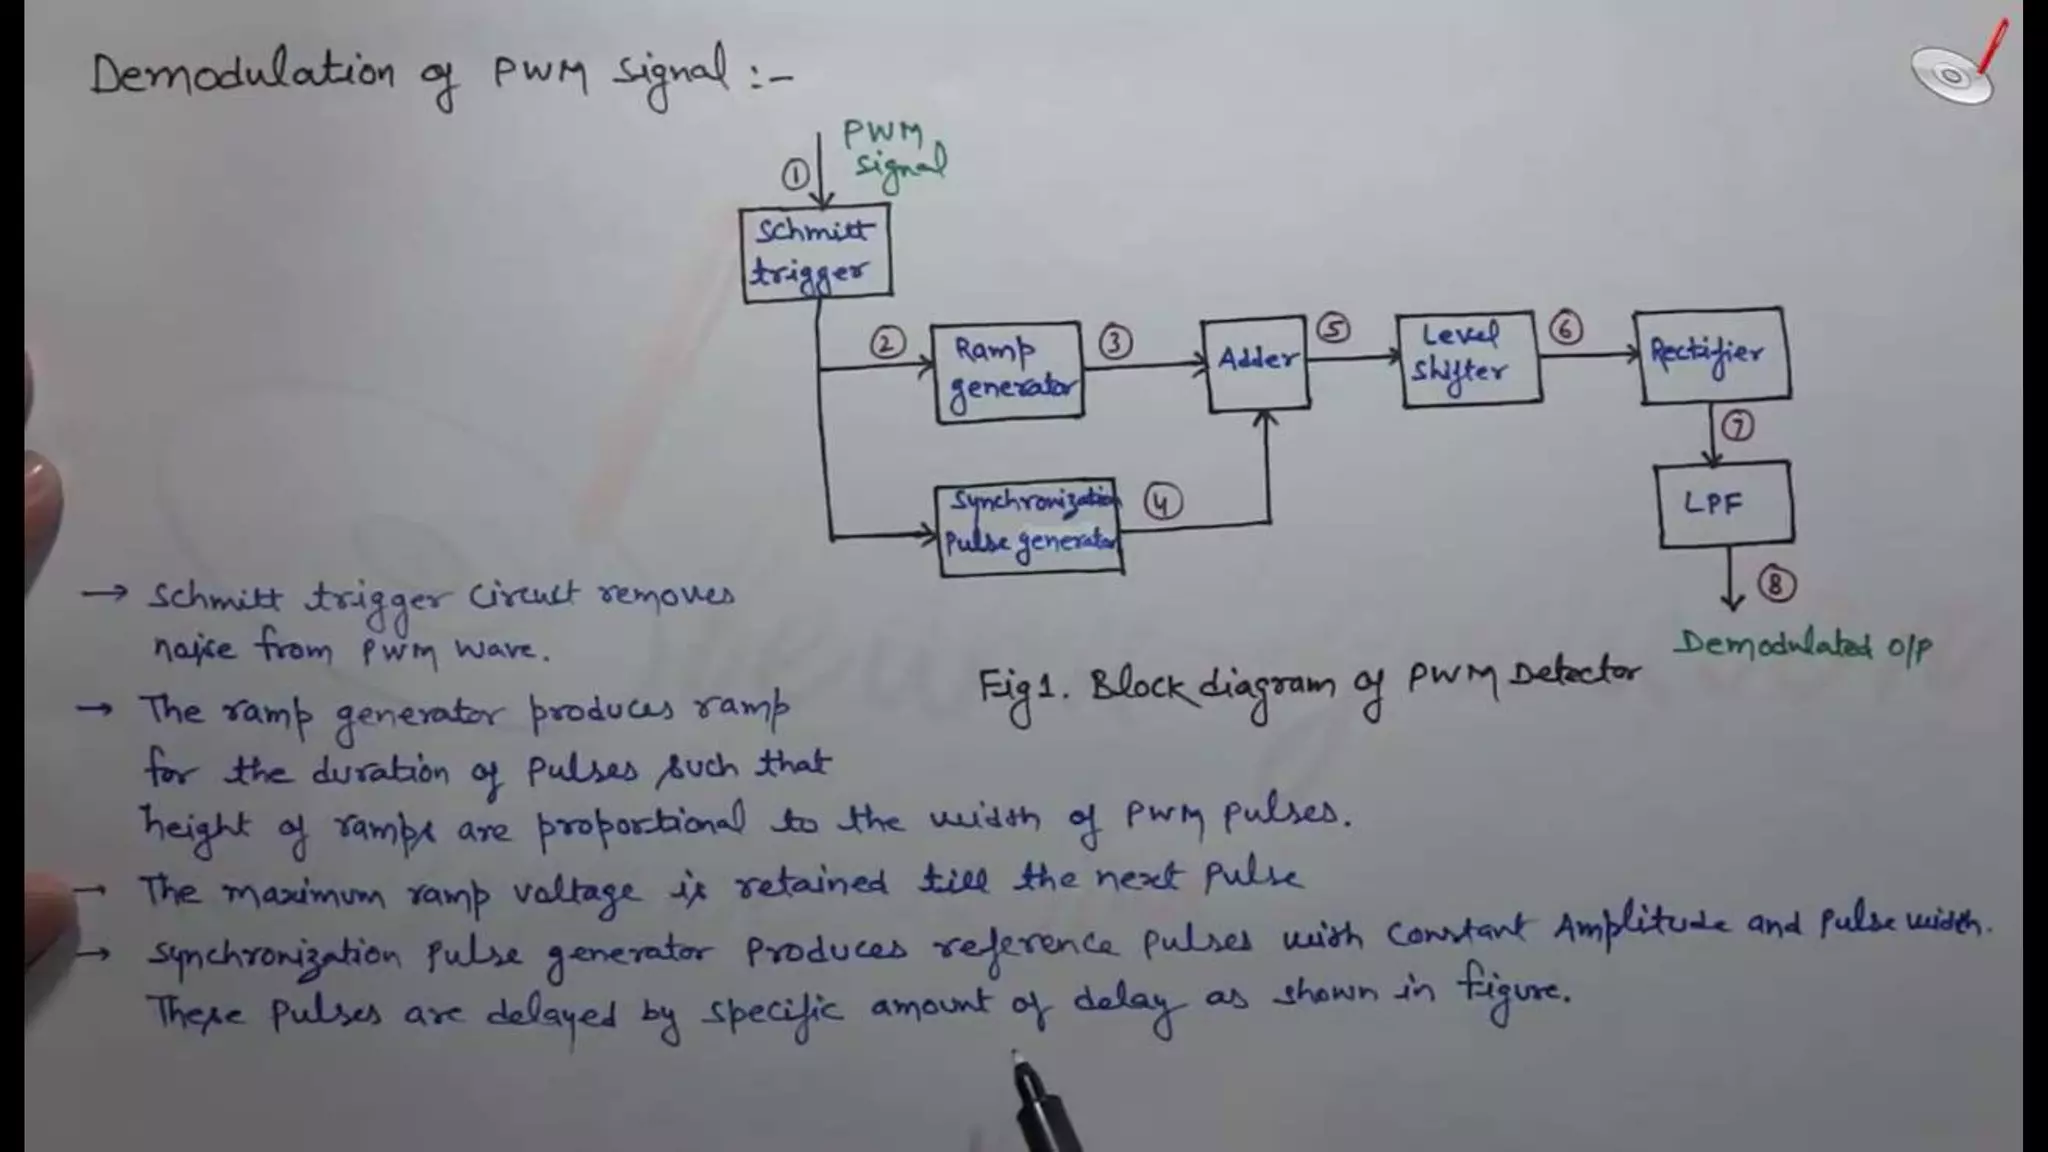 Demodulation of PWM signal :-
PWM
signal
①
Schmitt
trigger
②
Ramp
generator
③
Adder
⑤
Level
shifter
⑥
Rectifier
⑦
Synchronization
Pulse generator
④
LPF
⑧
Demodulated O/P
Fig 1. Block diagram of PWM Detector
→ Schmitt trigger circuit removes
noise from PWM wave.
→ The ramp generator produces ramp
for the duration of pulses such that
height of ramps are proportional to the width of PWM pulses.
→ The maximum ramp voltage is retained till the next pulse
→ Synchronization pulse generator produces reference pulses with constant Amplitude and pulse width.
These pulses are delayed by specific amount of delay as shown in figure.